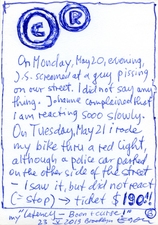 C R
On Monday, May 20, evening,
J.S. screamed at a guy pissing
on our street. I did not say any
thing. Johanne complained that
I am reacting sooo slowly.
On Tuesday, May 21 I rode
my bike thru a red light,
although a police car parked
on the other side of the street
– I saw it, but did not react
(– stop) → ticket $190!!
my "Latency – Boon + curse!"
23 2013 Brooklyn